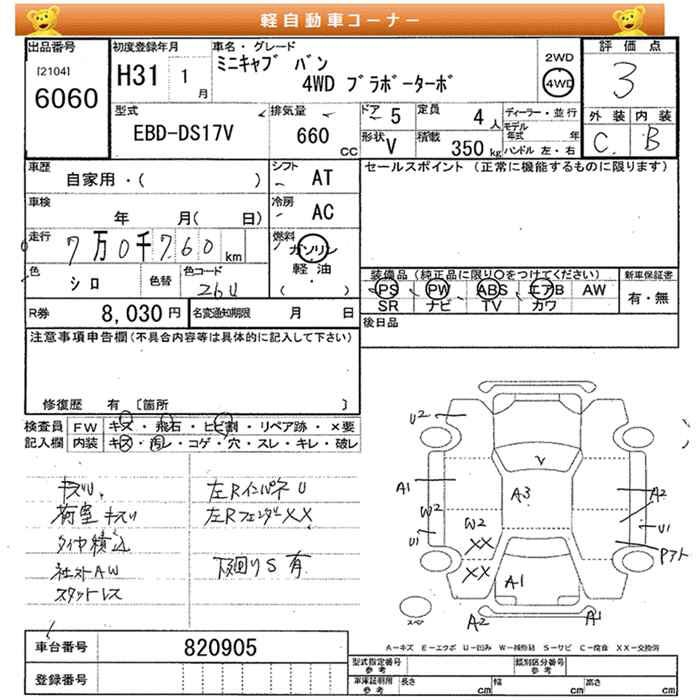 軽自動車コーナー
出品番号 [2104] 6060
初度登録年月 H31 1月
車名・グレード ミニキャブ バン 4WD ブラボーターボ
2WD 4WD
評価点 3
外装 C 内装 B
型式 EBD-DS17V
排気量 660 CC
ドア 5
定員 4人
形状 V
積載 350 kg
ディーラー・並行
モデル年式 年
ハンドル 左・右
車歴 自家用・( )
シフト AT
セールスポイント (正常に機能するものに限ります)
車検 年 月( 日)
冷房 AC
走行 7万0千760 km
燃料 ガソリン 軽油 ・( )
色 シロ 色替 色コード 26U
装備品 (純正品に限り○をつけてください)
PS PW ABS エアB AW
SR ナビ TV カワ
新車保証書 有・無
R券 8,030円
名変通知期限 月 日
後日品
注意事項申告欄 (不具合内容等は具体的に記入して下さい)
修復歴 有 [箇所 ]
検査員 FW キズ・飛石・ヒビ割・リペア跡・×要
記入欄 内装 キズ・汚レ・コゲ・穴・スレ・キレ・破レ
キズU
荷室キズU
タイヤ積込
社スト AW
スタットレス
左RインパネU
左RフェンダXX
下廻りS 有
U2
A1
W2
U1
V
A3
W2
XX
XX
A1
A2
U1
A2
A1
スペア
A-キズ E-エクボ U-凹み W-補修跡 S-サビ C-腐食 XX-交換済
車台番号 820905
登録番号
型式指定番号 参考
類別区分番号 参考
車庫証明用 参考 長さ cm 幅 cm 高さ cm